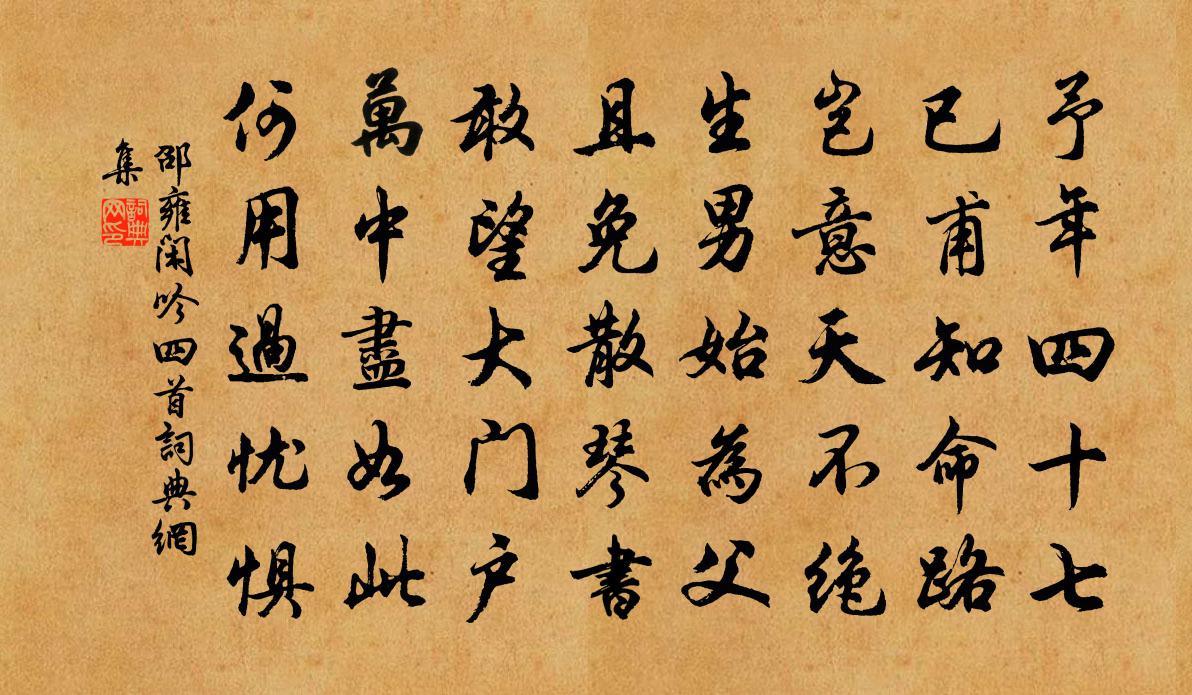 予年四十七
已甫知命路
岂意天不绝
生男始為父
且免散琴書
敢望大门户
萬中盡如此
何用過忧惧
邵雍闲吟四首詞典網
集
詞典网印